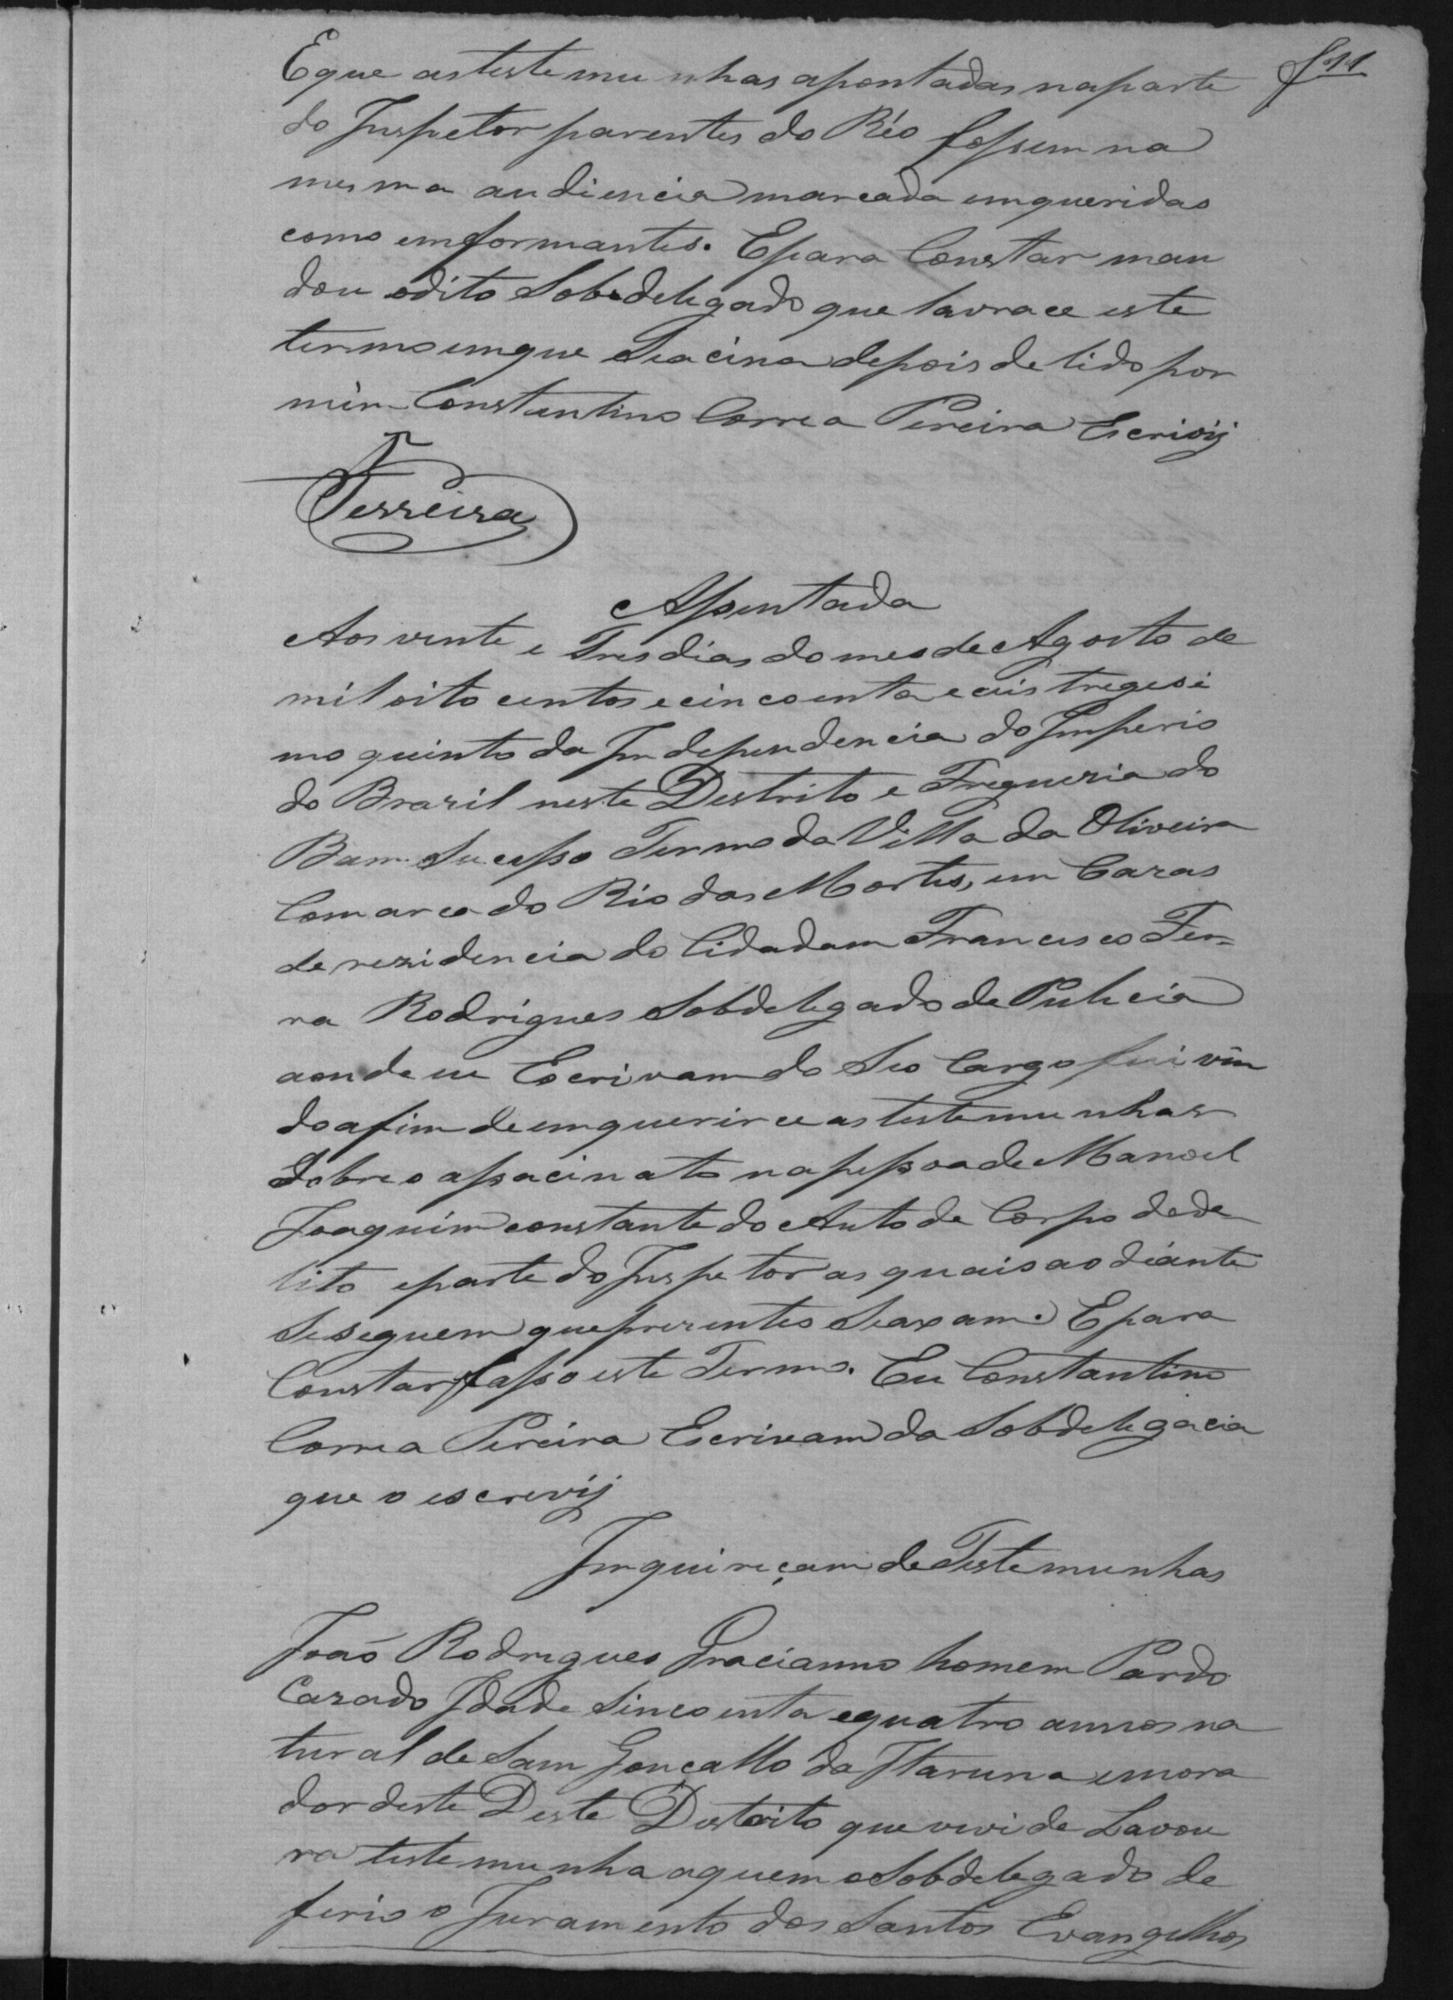 f 11
E que as testemunhas apontadas na parte
do Inspetor parentes do Réo fossem na
mesma audiencia marcada emqueridas
como emformantes. E para Constar man
dou o dito Sobdelegado que lavrace este
termo em que Se acina depois de lido por
mim Constantino Correa Pereira Escrivij
Ferreira
Assentada
Aos vinte e Tres dias do mes de Agosto de
mil oito centos e cincoenta e ceis tregesi
mo quinto da Independencia do Imperio
do Brazil neste Destrito e Freguezia do
Bam Sucesso Termo da Villa da Oliveira
Comarca do Rio das Mortes, em Cazas
de rezidencia do Cidadam Francisco Fer=
ra Rodrigues Sobdelegado de Pulicia
aonde eu Escrivam do Seo Cargo fui vin
do afim de emquerirce as testemunhas
Sobre o assacinato na pessoa de Manoel
Joaquim constante do Auto de Corpo de de
lito e parte do Inspetor as quais ao diante
Se seguem que prezentes Se axam. E para
Constar fasso este Termo. Eu Constantino
Correa Pereira Escrivam da Sobdelegacia
que o escrevij
Imquireçam de Testemunhas
João Rodrigues Gracianno homem Pardo
Cazado Idade Sincoenta e quatro annos na
tural de Sam Gonçallo da Itaruna e mora
dor deste Deste Destrito que vivi de Lavou
ra testemunha a quem o Sobdelegado de
ferio o Juramento dos Santos Evangelhos